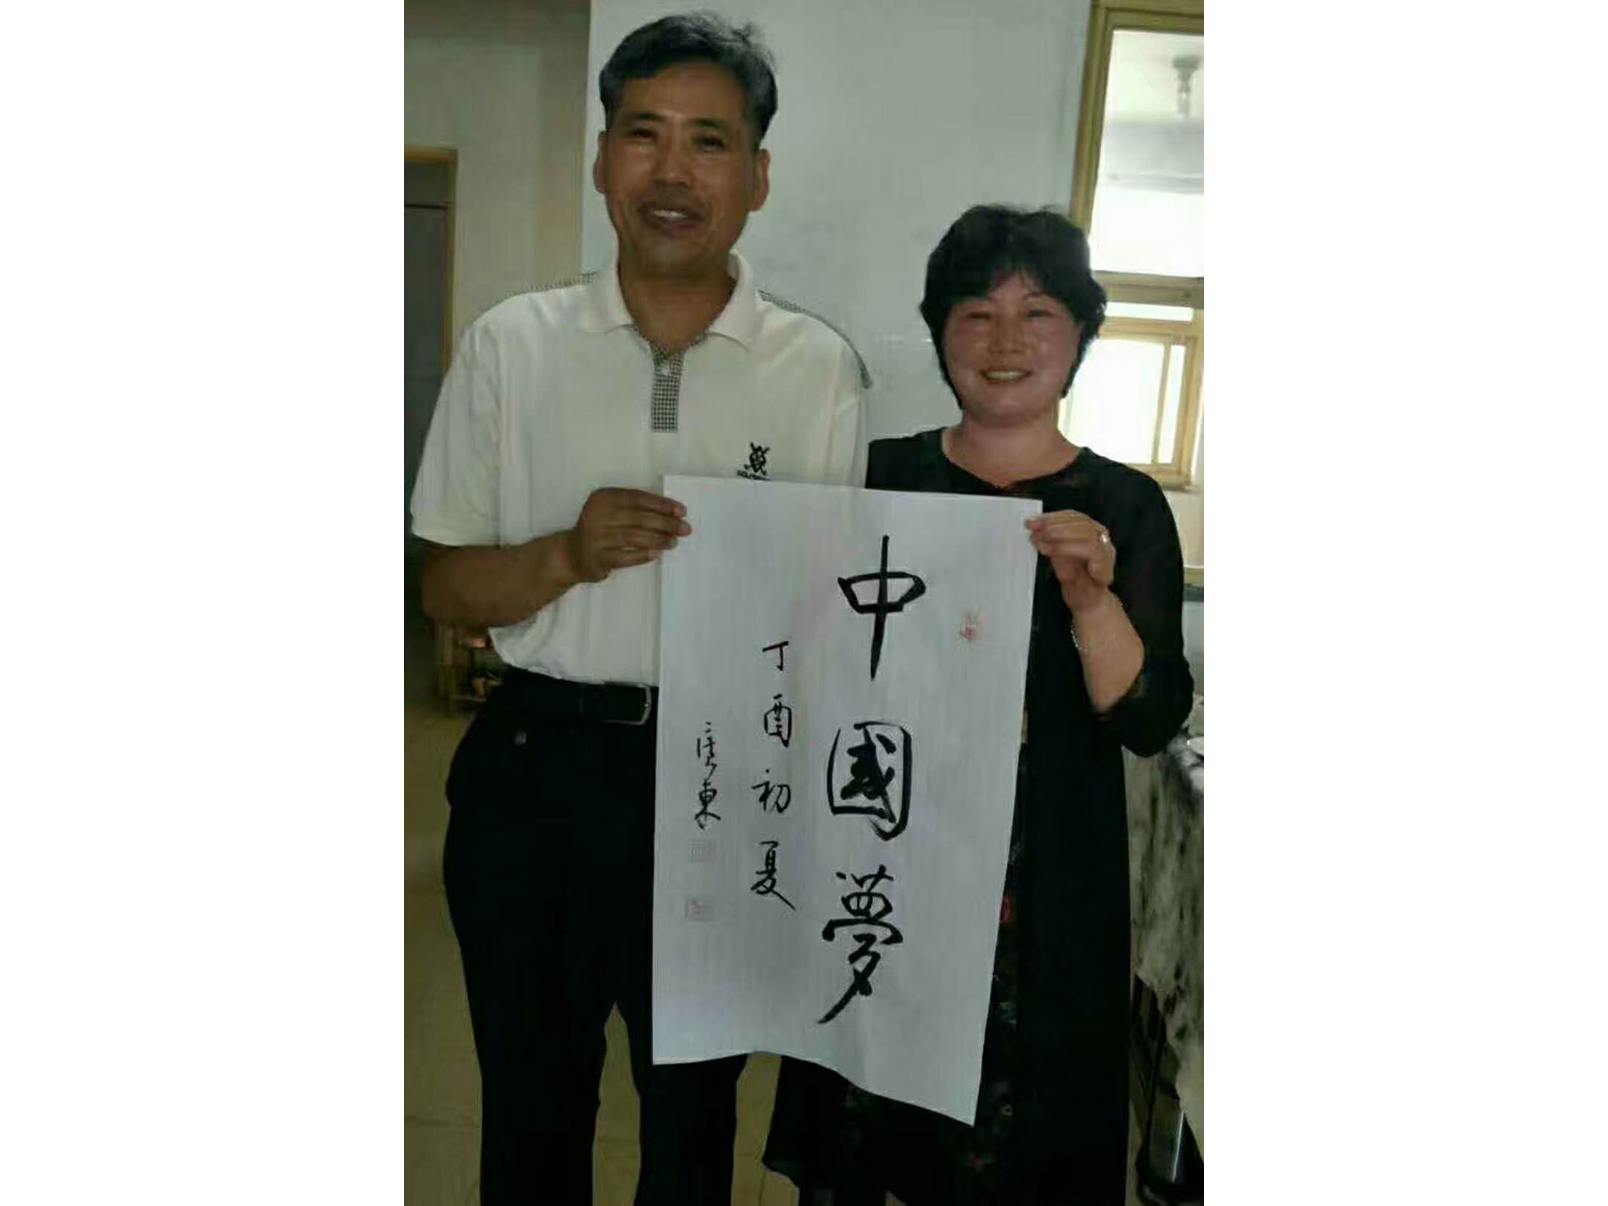 中國夢
丁酉初夏
廣東